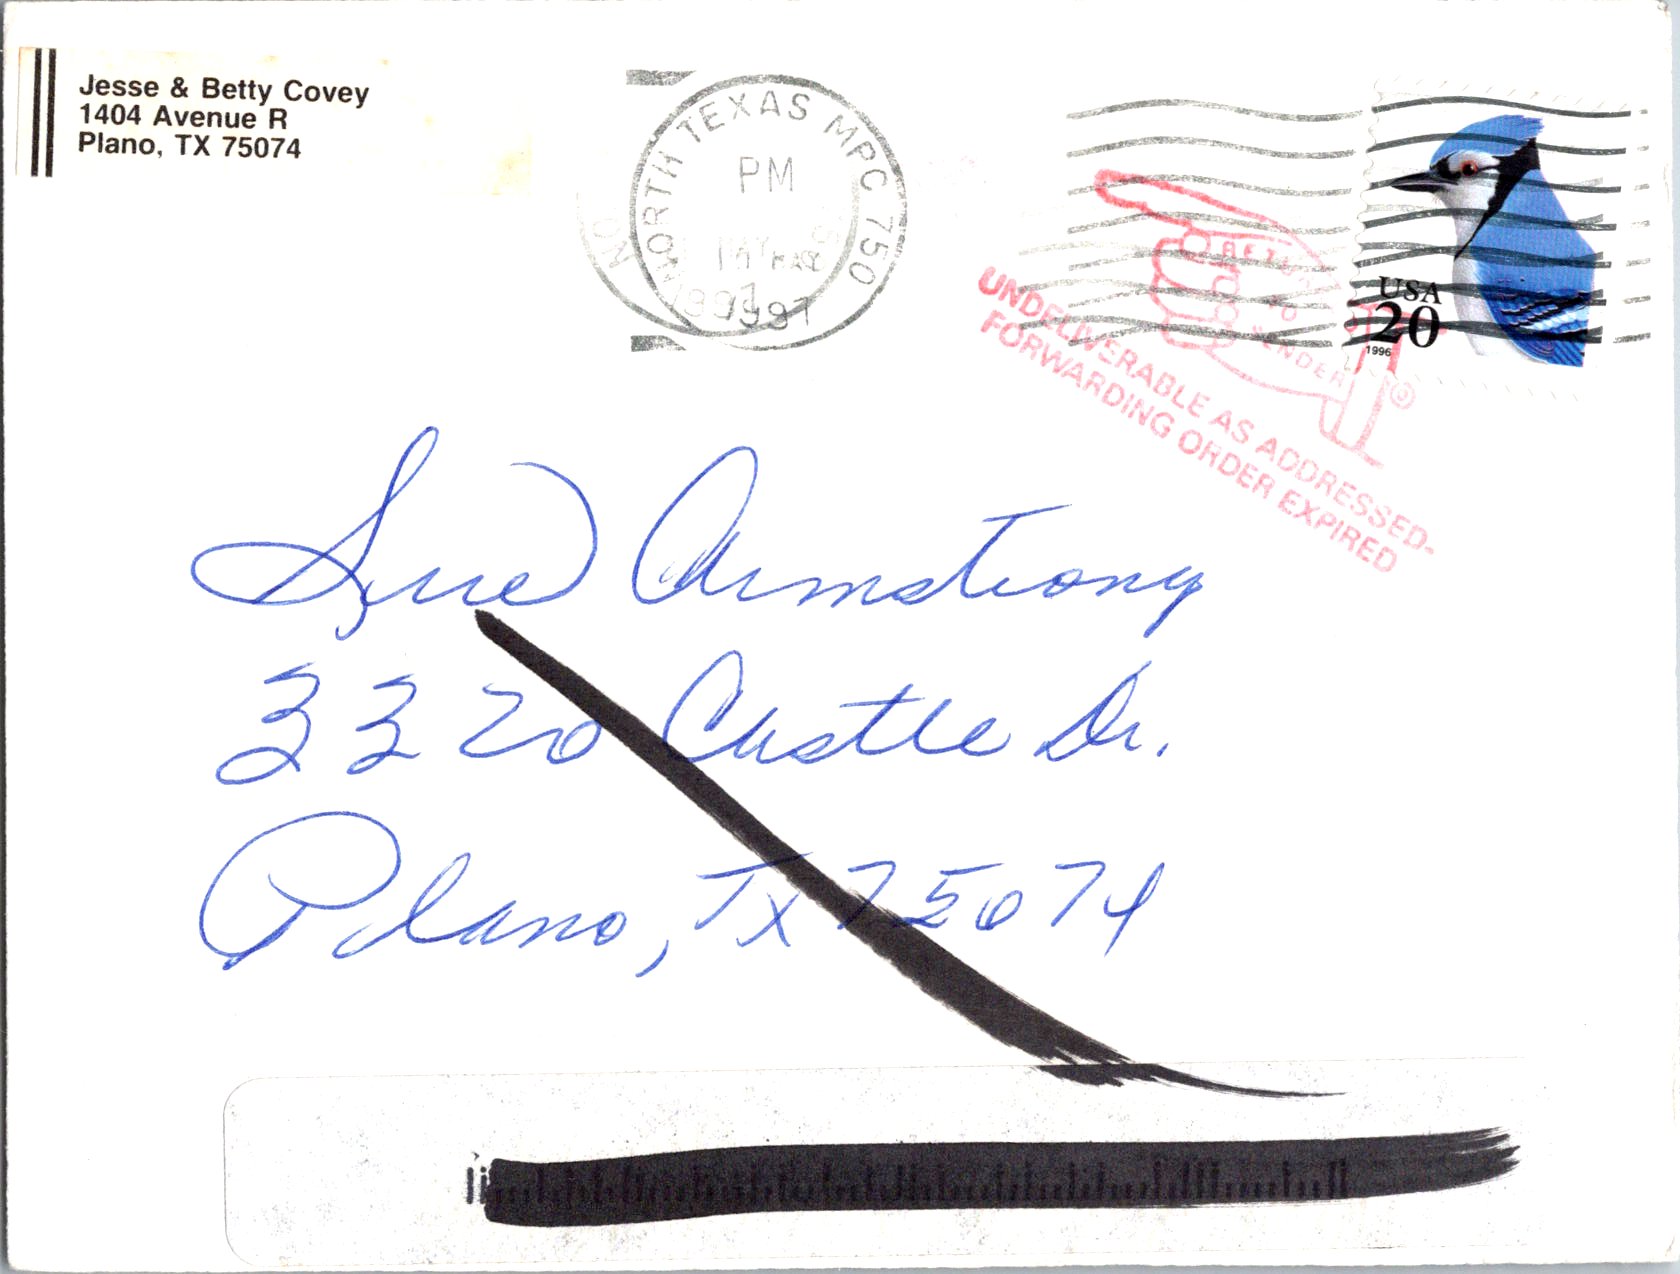 Jesse & Betty Covey
1404 Avenue R
Plano, TX 75074
NORTH TEXAS MPC 750
PM
MAY
1997
USA
20
1996
RETURN
TO
SENDER
UNDELIVERABLE AS ADDRESSED-
FORWARDING ORDER EXPIRED
Sue Armstrong
3320 Castle Dr.
Plano, TX 75074